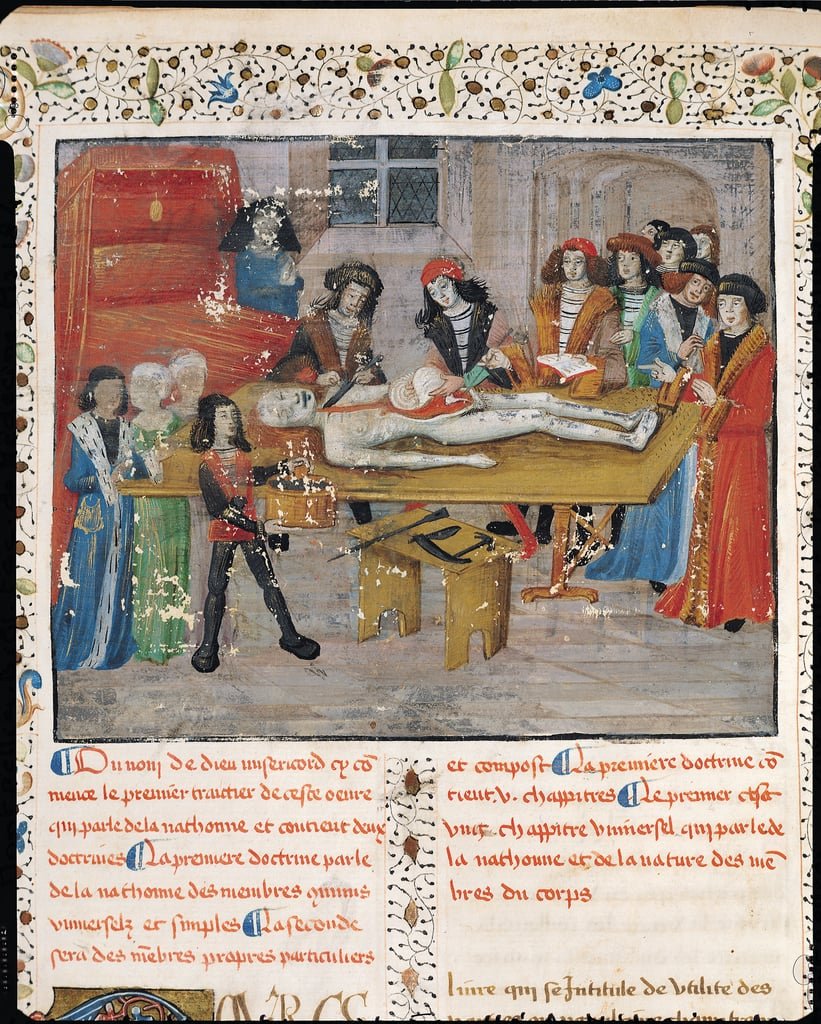 Du nom de dieu misericord cy cō
mence le premier traictier de ceste oeure
qui parle de la nathomie et contient deux
doctrines La premiere doctrine parle
de la nathomie des membres 9muns
vniuerselz et simples La seconde
sera des mēbres propres particuliers
et compost La premiere doctrine cō
tient .v. chappitres Le premier cħst
vng chappitre vniuersel qui parle de
la nathomie et de la nature des mē
bres du corps
liure qui se Intitule de vtilite des